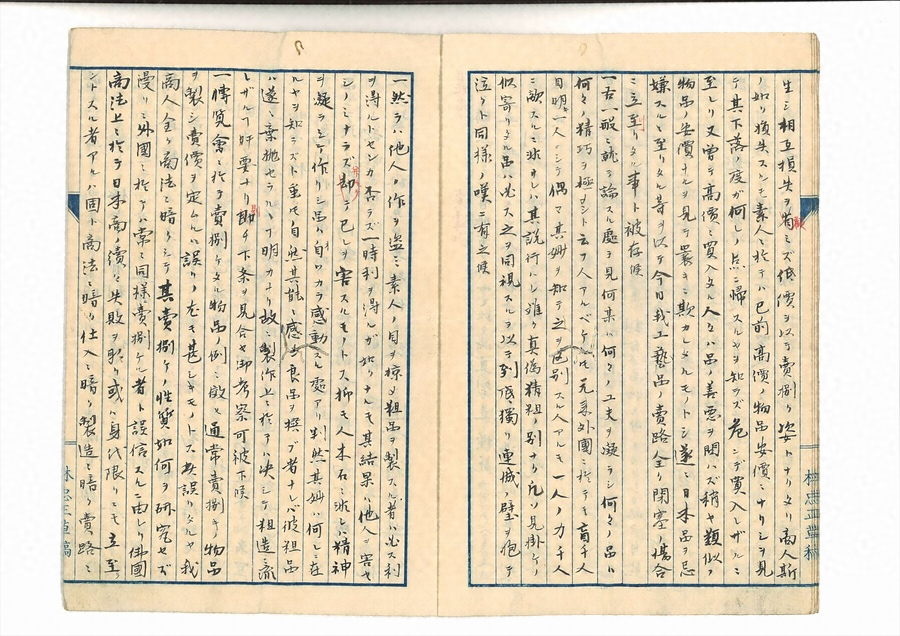 生シ相互損失ヲ省ミズ低價ヲ以テ賣捌ク姿トナリタリ商人斯
ノ如ク損失スルモ素人ニ於テハ已前高價ノ物品安價ニナリシヲ見
テ其下落ノ度ガ何レノ点ニ帰スルヤヲ知ラズ危ンデ買入レザルニ
至レリ又曽テ高價ニ買入タル人々ハ品ノ善悪ヲ問ハズ稍ヤ類似ノ
物品ノ安價ナルヲ見テ曩キニ欺カレタルモノトシ遂ニ日本品ヲ忌
嫌スルニ至リタル者ヲ以テ今日我工藝品ノ賣路全ク閉塞ノ場合
ニ立至リタル事ト被存候
一右一般ニ就テ論スル處ヲ見何某ハ何々ノ工夫ヲ凝ラシ何々ノ品ハ
何々ノ精巧ヲ極メシト云フ人アルベケレ𪜈元来外國ニ於テモ盲千人
目明一人ニシテ偶マ其妍ヲ知テ之ヲ区別スル人アルモ一人ノ力千人
ニ敵スルニ非サレハ其説行ハレ難ク真偽精粗ノ別ナク凡ソ見掛ケノ
似寄リタル品ハ必ス之ヲ同視スルヲ以テ到底獨リ連城ノ璧ヲ抱テ
泣クト同様ノ嘆ニ有之候
一然ラハ他人ノ作ヲ盗ミ素人ノ目ヲ掠メ粗品ヲ製スル者ハ必ス利
ヲ得ルトセンカ否ラズ一時利ヲ得ルガ如クナルモ其結果ハ他人ヲ害セ
シノミナラズ却テ己レヲ害スルモノトス抑モ人木石ニ非レハ精神
ヲ凝ラシテ作リシ品ハ自ヲカラ感動スル處アリ判然其妍ハ何レニ在
ルヤヲ知ラズト雖モ自然其能ニ感シ良品ヲ撰ブ者ナレバ彼粗品
ハ遂ニ棄抛セラルヽヿ明カナリ故ニ製作上ニ於テハ決シテ粗造ニ流
レザルヿ肝要ナリ即チ下条ヲ見合セ御考察可被下候
一博覧會ニ於テ賣捌ケタル物品ノ例ニ倣ヒ通常賣捌キノ物品
ヲ製シ賣價ヲ定ムルハ誤リノ尤モ甚シキモノトス此誤リタルヤ我
商人全ク商法ニ暗クシテ其賣捌ケノ性質如何ヲ研究セズ
漫リニ外國ニ於テハ常ニ同様賣捌ケル者ト誤信スルニ由レリ佛國
商法上ニ於テ日本商ノ續々失敗ヲ取リ或ハ身代限リニモ立至ラ
ントスル者アルハ固ト商法ニ暗ク仕入ニ暗ク製造ニ暗ク賣路ニ
林忠正草稿
林忠正草稿